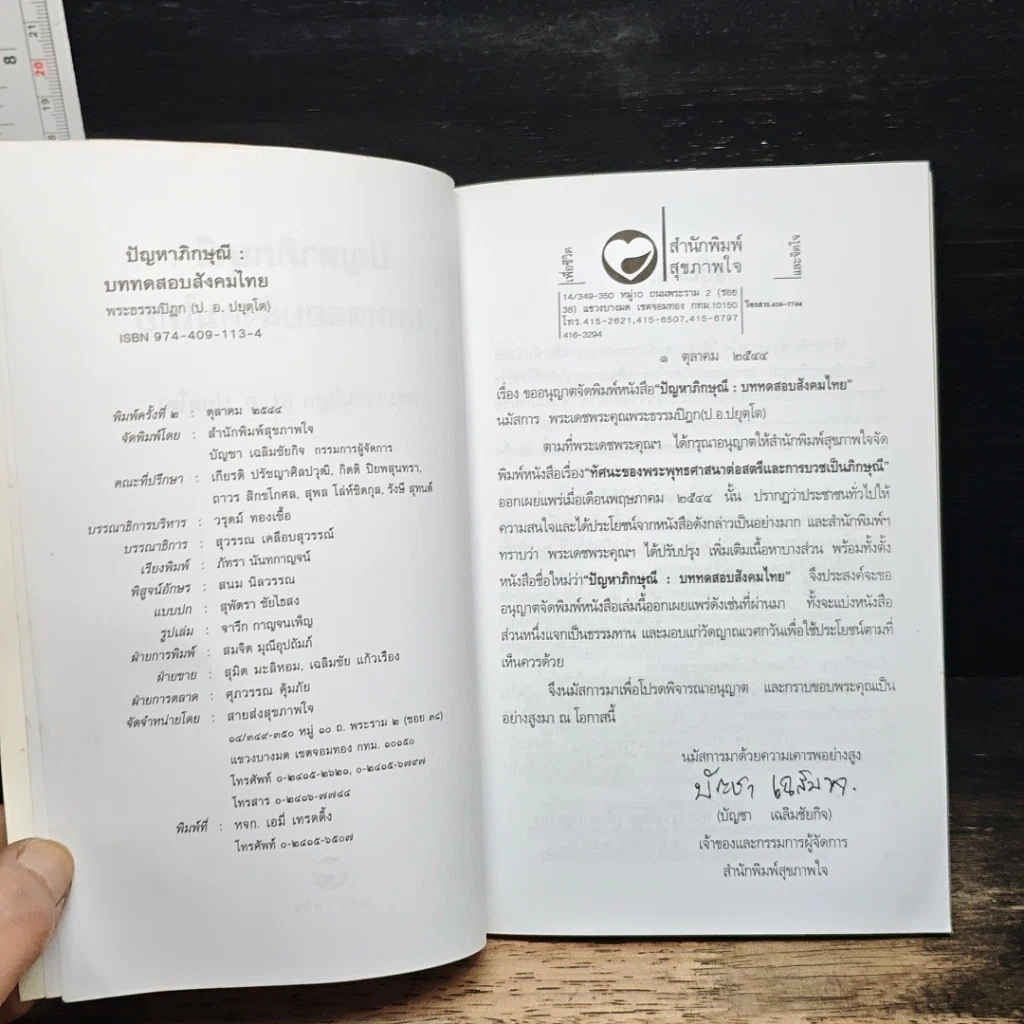 ปัญหาภิกษุณี :
บททดสอบสังคมไทย
พระธรรมปิฎก (ป. อ. ปยุตฺโต)
ISBN 974-409-113-4
พิมพ์ครั้งที่ ๒ : ตุลาคม ๒๕๔๔
จัดพิมพ์โดย : สำนักพิมพ์สุขภาพใจ
บัญชา เฉลิมชัยกิจ กรรมการผู้จัดการ
คณะที่ปรึกษา : เกียรติ ปรัชญาศิลปวุฒิ, กิตติ ปิยพสุนทรา,
ถาวร สิกขโกศล, สุพล โล่ห์ชิตกุล, รังษี สุทนต์
บรรณาธิการบริหาร : วรุตม์ ทองเชื้อ
บรรณาธิการ : สุวรรณ เคลือบสุวรรณ์
เรียงพิมพ์ : ภัทรา นันทกาญจน์
พิสูจน์อักษร : สนม นิลวรรณ
แบบปก : สุพัตรา ชัยไธสง
รูปเล่ม : จารึก กาญจนเพ็ญ
ฝ่ายการพิมพ์ : สมจิต มุณีอุปถัมภ์
ฝ่ายขาย : สุมิต มะลิหอม, เฉลิมชัย แก้วเรือง
ฝ่ายการตลาด : ศุภวรรณ คุ้มภัย
จัดจำหน่ายโดย : สายส่งสุขภาพใจ
๑๔/๓๔๙-๓๕๐ หมู่ ๑๐ ถ. พระราม ๒ (ซอย ๓๘)
แขวงบางมด เขตจอมทอง กทม. ๑๐๑๕๐
โทรศัพท์ ๐-๒๔๑๕-๒๖๒๑, ๐-๒๔๑๕-๖๗๙๗
โทรสาร ๐-๒๔๑๖-๗๗๔๔
พิมพ์ที่ : หจก. เอมี่ เทรดดิ้ง
โทรศัพท์ ๐-๒๔๑๕-๖๕๐๗
เพื่อชีวิต
สำนักพิมพ์
สุขภาพใจ
และจิตใจ
14/349-350 หมู่10 ถนนพระราม 2 (ซอย
38) แขวงบางมด เขตจอมทอง กทม.10150
โทร.415-2621,415-6507,415-6797
416-3294
โทรสาร.416-7744
๑ ตุลาคม ๒๕๔๔
เรื่อง ขออนุญาตจัดพิมพ์หนังสือ“ปัญหาภิกษุณี : บททดสอบสังคมไทย”
นมัสการ พระเดชพระคุณพระธรรมปิฎก(ป.อ.ปยุตฺโต)
ตามที่พระเดชพระคุณฯ ได้กรุณาอนุญาตให้สำนักพิมพ์สุขภาพใจจัด
พิมพ์หนังสือเรื่อง“ทัศนะของพระพุทธศาสนาต่อสตรีและการบวชเป็นภิกษุณี”
ออกเผยแพร่เมื่อเดือนพฤษภาคม ๒๕๔๔ นั้น ปรากฏว่าประชาชนทั่วไปให้
ความสนใจและได้ประโยชน์จากหนังสือดังกล่าวเป็นอย่างมาก และสำนักพิมพ์ฯ
ทราบว่า พระเดชพระคุณฯ ได้ปรับปรุง เพิ่มเติมเนื้อหาบางส่วน พร้อมทั้งตั้ง
หนังสือชื่อใหม่ว่า“ปัญหาภิกษุณี : บททดสอบสังคมไทย” จึงประสงค์จะขอ
อนุญาตจัดพิมพ์หนังสือเล่มนี้ออกเผยแพร่ดังเช่นที่ผ่านมา ทั้งจะแบ่งหนังสือ
ส่วนหนึ่งแจกเป็นธรรมทาน และมอบแก่วัดญาณเวศกวันเพื่อใช้ประโยชน์ตามที่
เห็นควรด้วย
จึงนมัสการมาเพื่อโปรดพิจารณาอนุญาต และกราบขอบพระคุณเป็น
อย่างสูงมา ณ โอกาสนี้
นมัสการมาด้วยความเคารพอย่างสูง
(บัญชา เฉลิมชัยกิจ)
เจ้าของและกรรมการผู้จัดการ
สำนักพิมพ์สุขภาพใจ
8
21
20
19
18